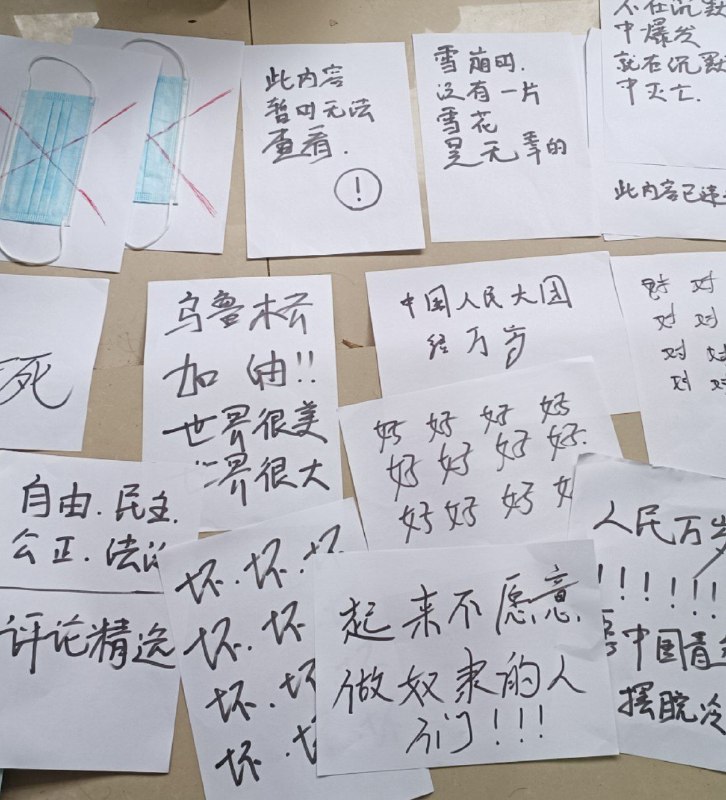 此内容
暂时无法
查看.
!
雪崩时.
没有一片
雪花
是无辜的
不在沉默
中爆发
就在沉默
中灭亡.
此内容已违
死
乌鲁木齐
加油!!
世界很美
世界很大
中国人民大团
结万岁
对 对
对 对
对 对
对 对
好 好 好 好
好 好 好 好
好 好 好 好
自由.民主.
公正.法治
评论精选
坏.坏.坏
坏.坏
坏.坏
坏.坏
起来不愿意
做奴隶的人
们!!!
人民万岁
!!!!!!
中国青
摆脱冷